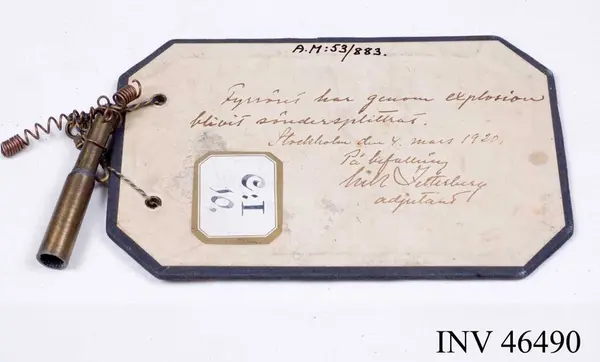 A.M:53/883.
Fyrröret har genom explosion
blivit söndersplittrat.
Stockholm den 4. mars 1920.
På befallning
Zetterberg
adjutant
C:I
10.
INV 46490